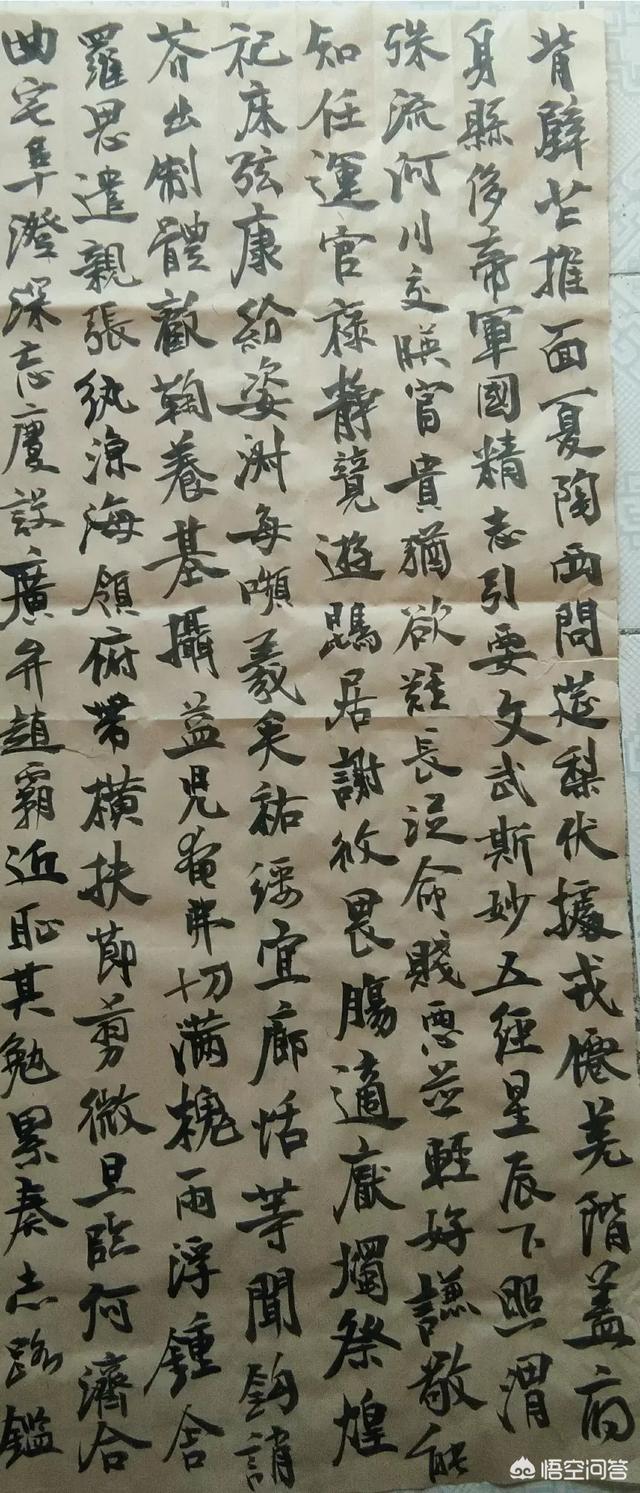 背璧芒推面夏陶西問莛梨伏據戎僊羌階蓋府
身縣侈帝軍國精志引要文武斯妙五經星辰下照渭
殊流河川交映富貴猶欲難長從命賤惡並輕好謙敬能
知任運官祿靜覽遊鵾居謝攸畏腸適厭燭祭煌
祀床弦康紛姿淵每嚬義矣祐綏宜廊恬等聞鈞誚
芥出制體歡鞠養基攝益兒奄弗切滿槐雨浮鍾舍
羅思遣親張紈涼海領俯帶橫扶節剪微旦臨何濟合
曲宅阜澄深忘慶設廣弁趙霸近耻其勉累奏志路鑑
悟空问答